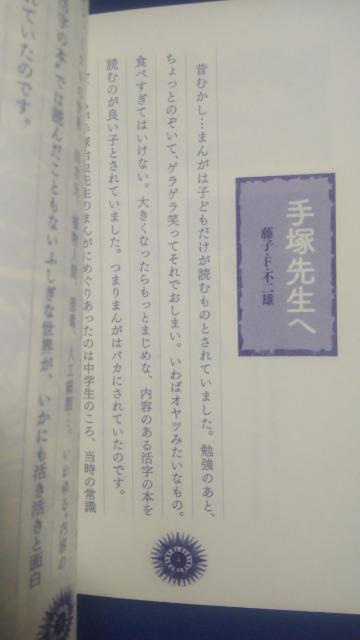 手塚先生へ
藤子・F・不二雄
昔むかし…まんがは子どもだけが読むものとされていました。勉強のあと、
ちょっとのぞいて、ゲラゲラ笑ってそれでおしまい。いわばオヤツみたいなもの。
食べすぎてはいけない。大きくなったらもっとまじめな、内容のある活字の本を
読むのが良い子とされていました。つまりまんがはバカにされていたのです。
手塚治虫先生のまんがにめぐりあったのは中学生のころ、当時の常識
植物人間、恐竜、人工細胞…。いわゆる"内容の
活字の本"では読んだこともないふしぎな世界が、いかにも活き活きと面白
れていたのです。